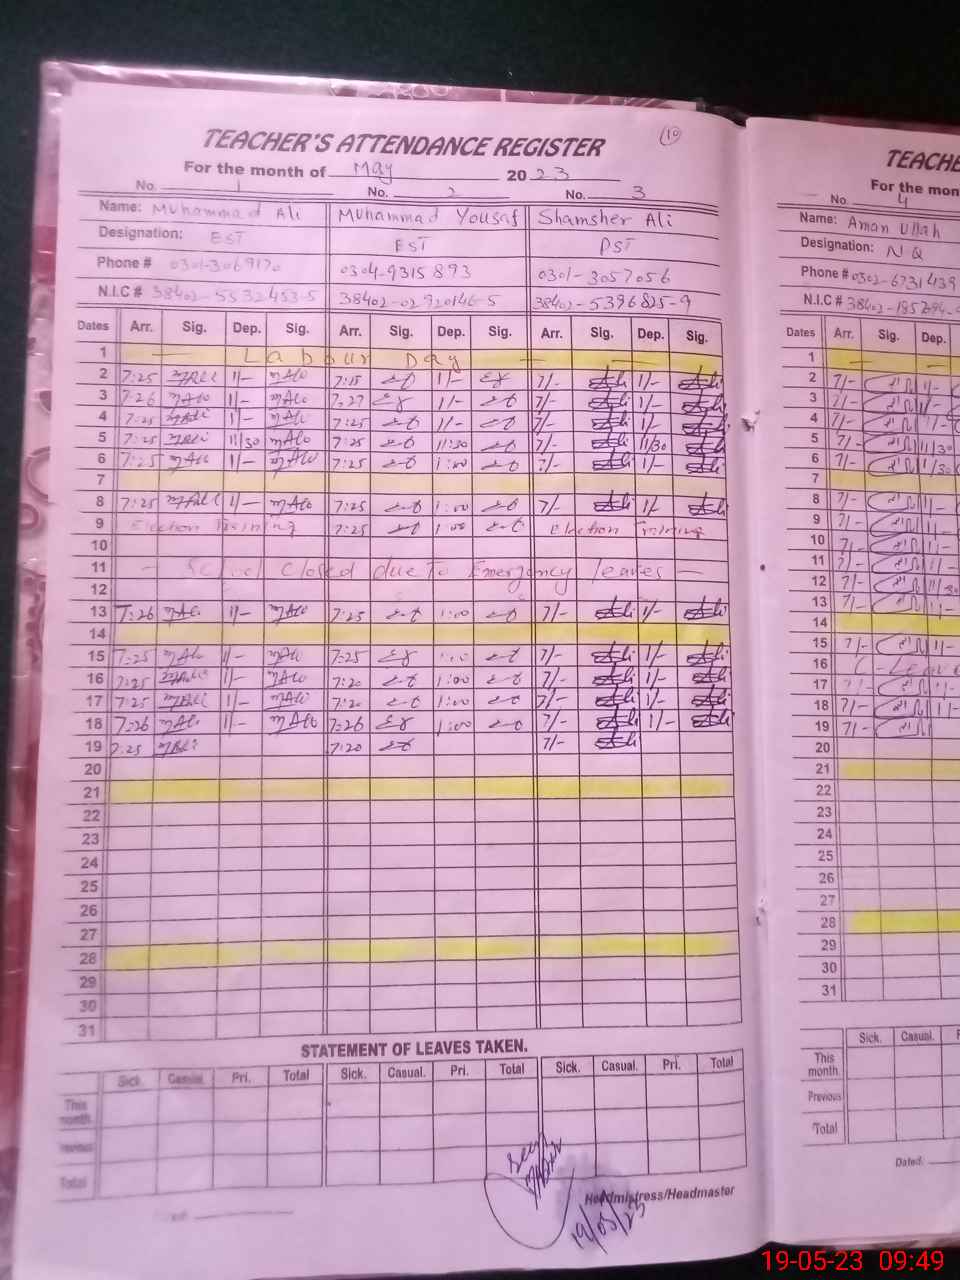 10
TEACHER'S ATTENDANCE REGISTER
For the month of May 2023
No. 1 No. 2 No. 3
Name: Muhammad Ali Muhammad Yousaf Shamsher Ali
Designation: EST EST PST
Phone # 0301-3069170 0304-9315893 0301-3057056
N.I.C # 38402-5532453-5 38402-0292014 6-5 38402-5396825-9
Dates Arr. Sig. Dep. Sig. Arr. Sig. Dep. Sig. Arr. Sig. Dep. Sig.
1 — Labour Day — —
2 7:25 1/- 7:15 1/- 7/- Ali 1/- Ali
3 7:26 1/- 7:27 1/- 7/- Ali 1/- Ali
4 7:25 1/- 7:25 1/- 7/- Ali 1/- Ali
5 7:25 11/30 7:25 11:30 7/- Ali 11/30 Ali
6 7:25 1/- 7:25 1:00 7/- Ali 1/- Ali
7
8 7:25 1/- 7:25 1:00 7/- Ali 1/- Ali
9 Election Training 7:25 1:00 Election Training
10
11 - School closed due to Emergency leaves -
12
13 7:26 1/- 7:25 1:00 7/- Ali 1/- Ali
14
15 7:25 1/- 7:25 1:00 7/- Ali 1/- Ali
16 7:25 1/- 7:20 1:00 7/- Ali 1/- Ali
17 7:25 1/- 7:20 1:00 7/- Ali 1/- Ali
18 7:26 1/- 7:26 1:00 7/- Ali 1/- Ali
19 7:25 7:20 7/- Ali
20
21
22
23
24
25
26
27
28
29
30
31
STATEMENT OF LEAVES TAKEN.
Sick. Casual. Pri. Total Sick. Casual. Pri. Total Sick. Casual. Pri. Total
This month.
Previous
Total
Seen
Headmistress/Headmaster
19/05/23
TEACHE
For the mon
No. 4
Name: Aman Ullah
Designation: N Q
Phone # 0302-6731439
N.I.C # 38402-
Dates Arr. Sig. Dep.
1 —
2 7/- 1/-
3 7/- 1/-
4 7/- 1/-
5 7/- 11/30
6 7/- 11/30
7
8 7/- 1/-
9 7/- 1/-
10 7/- 1/-
11 7/- 1/-
12 7/- 11/30
13 7/- 1/-
14
15 7/- 1/-
16 C-Leave
17 7/- 1/-
18 7/- 1/-
19 7/-
20
21
22
23
24
25
26
27
28
29
30
31
Sick. Casual.
This month.
Previous
Total
Dated.
19-05-23 09:49